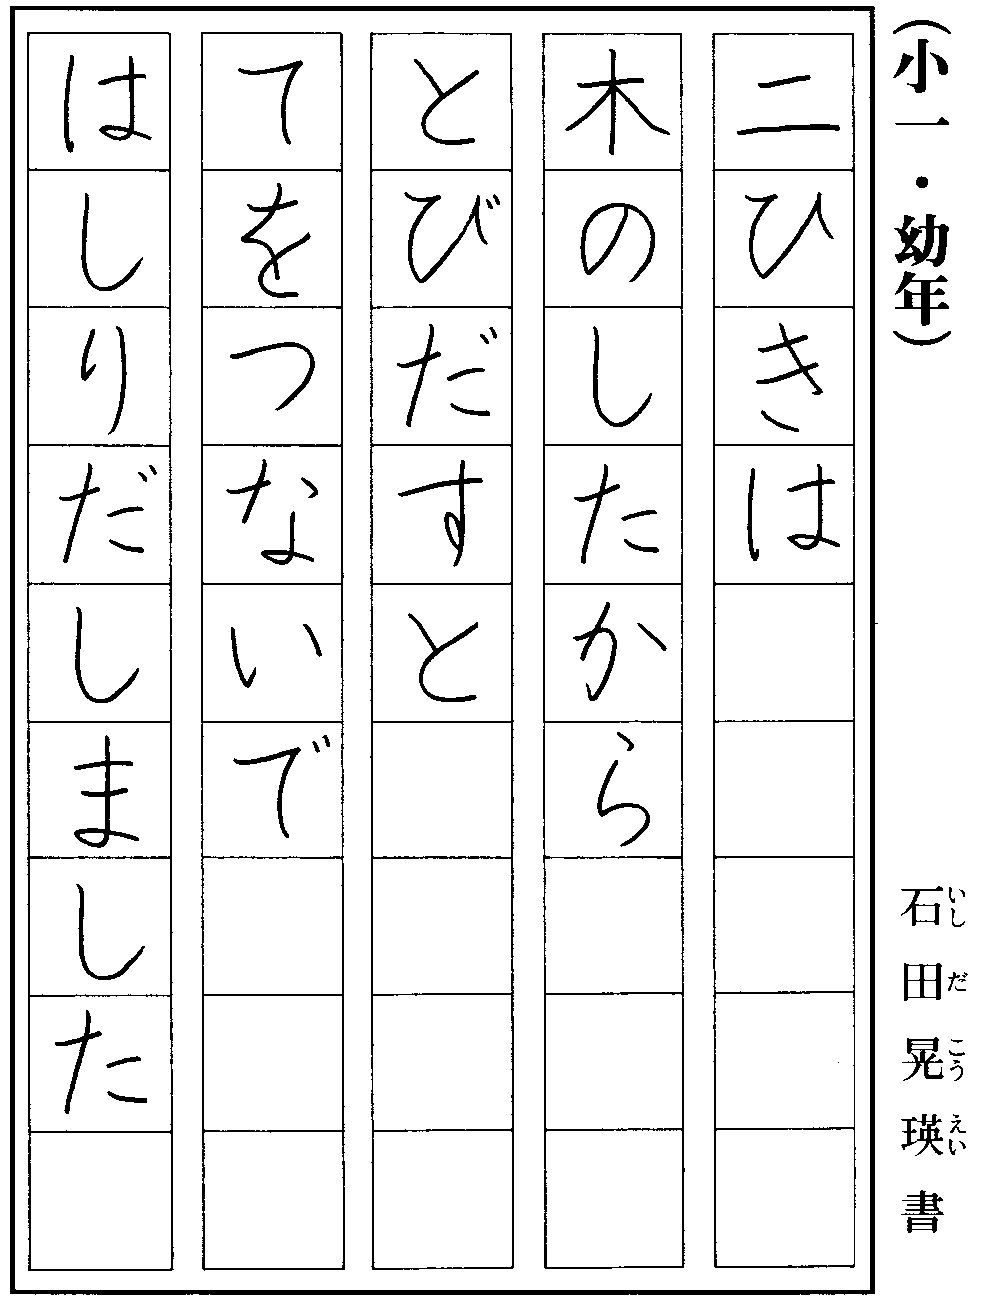 (小一・幼年)
石田晃瑛書
いしだこうえい
二ひきは
木のしたから
とびだすと
てをつないで
はしりだしました